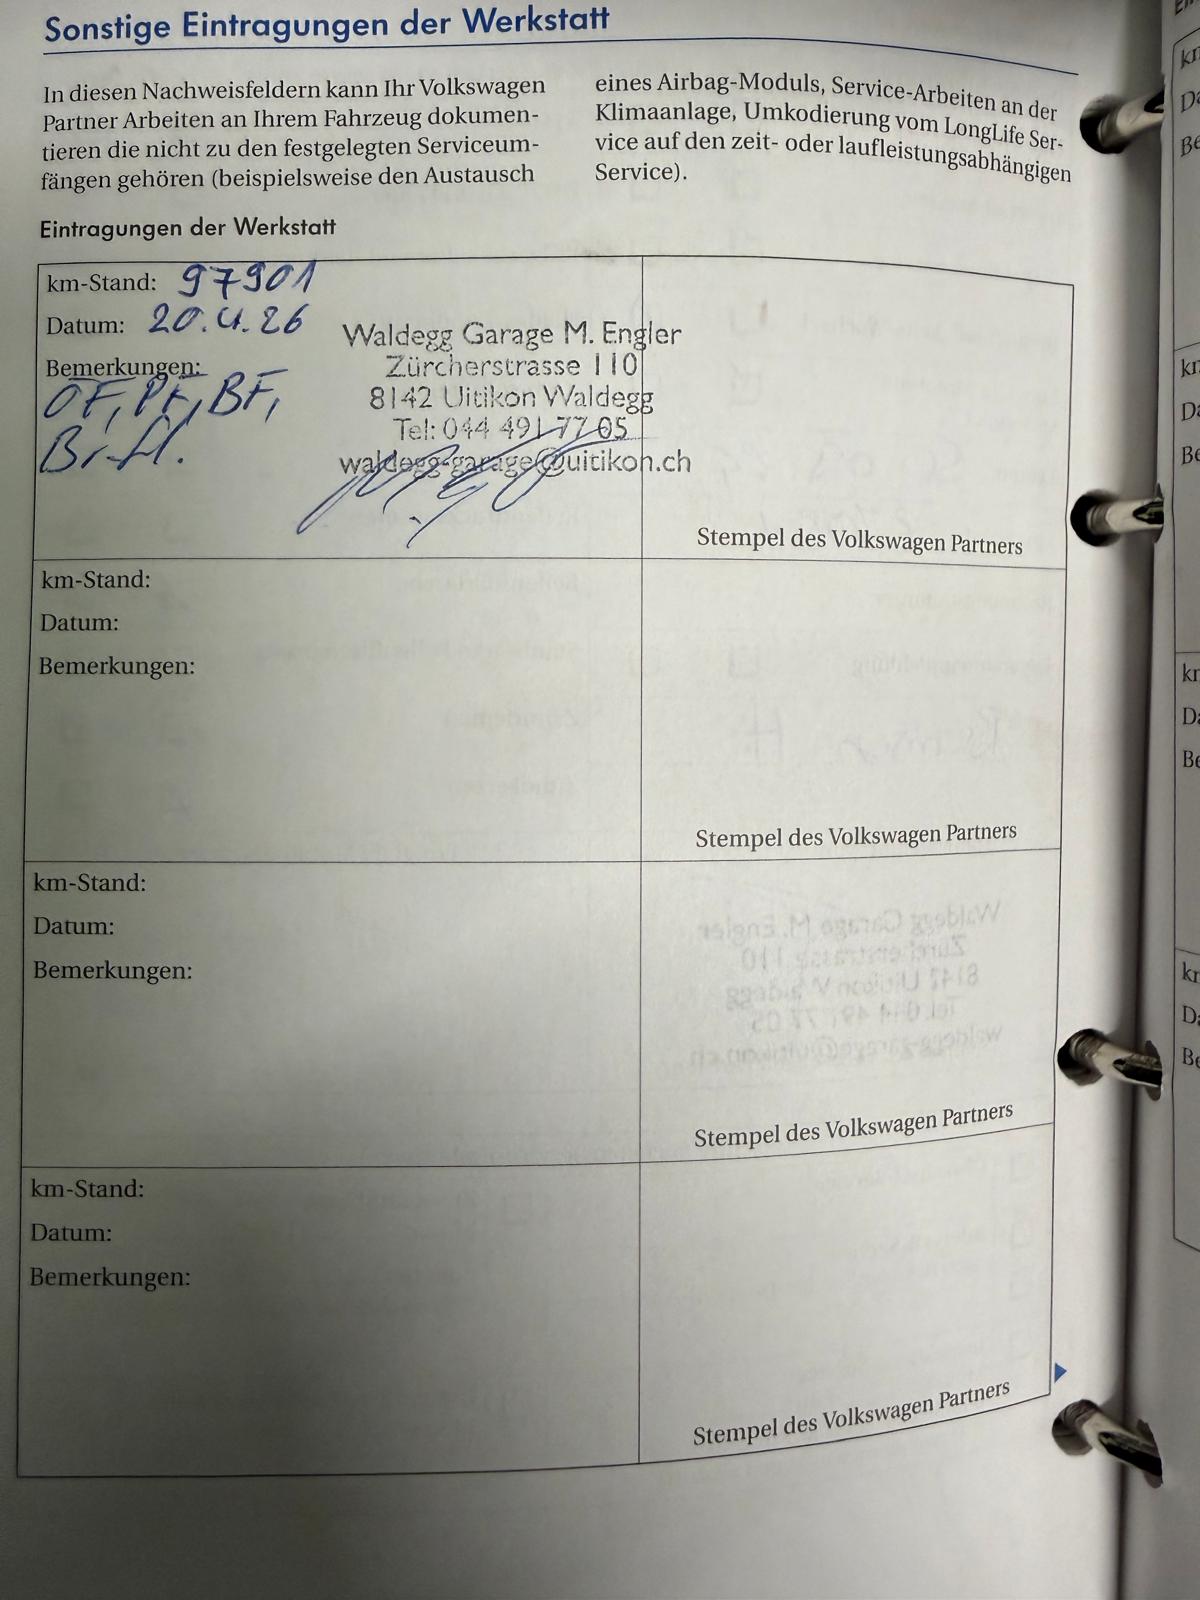 Sonstige Eintragungen der Werkstatt
In diesen Nachweisfeldern kann Ihr Volkswagen
Partner Arbeiten an Ihrem Fahrzeug dokumen-
tieren die nicht zu den festgelegten Serviceum-
fängen gehören (beispielsweise den Austausch
eines Airbag-Moduls, Service-Arbeiten an der
Klimaanlage, Umkodierung vom LongLife Ser-
vice auf den zeit- oder laufleistungsabhängigen
Service).
Eintragungen der Werkstatt
km-Stand: 97901
Datum: 20.4.26
Bemerkungen:
ÖF, PF, BF,
Br.fl.
Waldegg Garage M. Engler
Zürcherstrasse 110
8142 Uitikon Waldegg
Tel: 044 491 77 05
waldegg-garage@uitikon.ch
Stempel des Volkswagen Partners
km-Stand:
Datum:
Bemerkungen:
Stempel des Volkswagen Partners
km-Stand:
Datum:
Bemerkungen:
Stempel des Volkswagen Partners
km-Stand:
Datum:
Bemerkungen:
Stempel des Volkswagen Partners